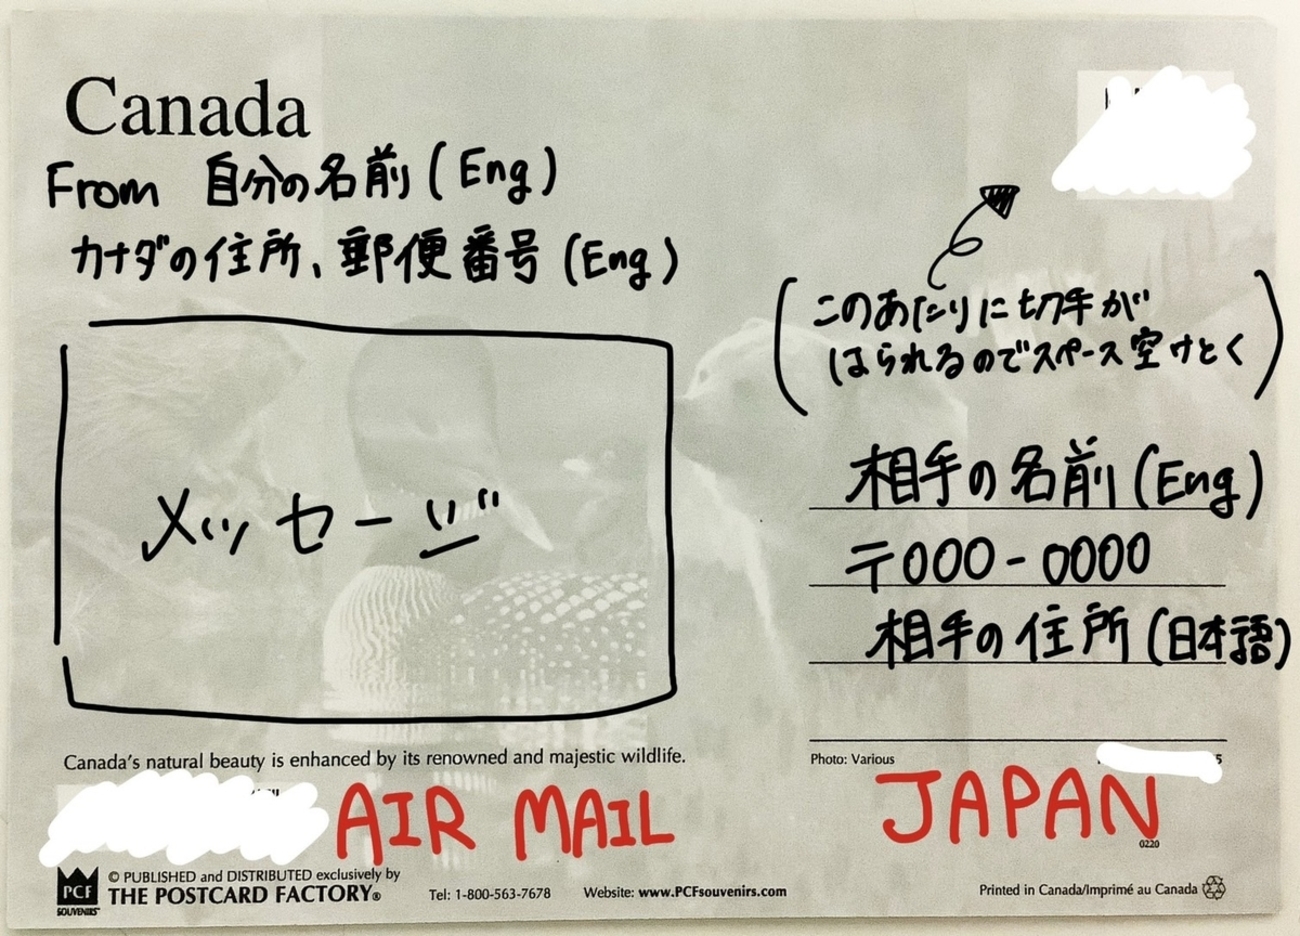 Canada
From 自分の名前 (Eng)
カナダの住所、郵便番号 (Eng)
(このあたりに切手が
はられるのでスペース空けとく)
メッセージ
相手の名前 (Eng)
〒000-0000
相手の住所 (日本語)
Canada's natural beauty is enhanced by its renowned and majestic wildlife.
Photo: Various
AIR MAIL
JAPAN
0220
PCF
SOUVENIRS™
© PUBLISHED and DISTRIBUTED exclusively by
THE POSTCARD FACTORY®
Tel: 1-800-563-7678
Website: www.PCFsouvenirs.com
Printed in Canada/Imprimé au Canada